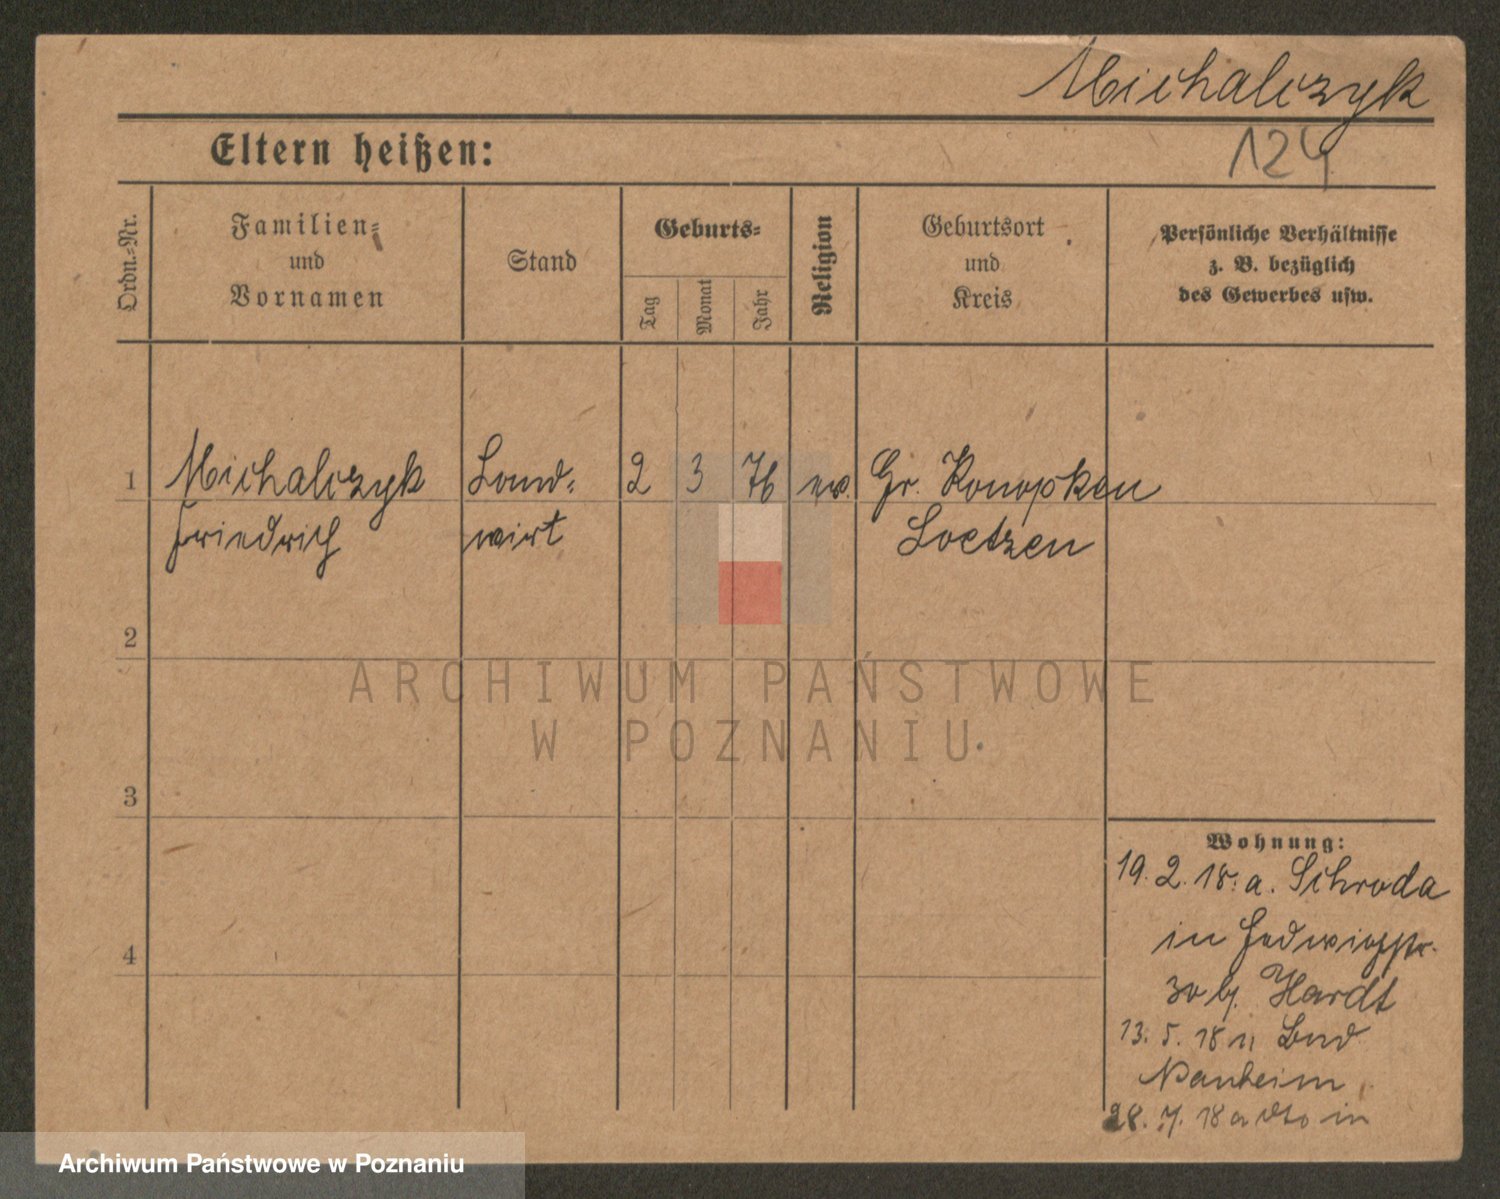 Michalczyk
124
Eltern heißen:
Ordn.-Nr.
Familien-
und
Vornamen
Stand
Geburts-
Tag
Monat
Jahr
Religion
Geburtsort
und
Kreis
Persönliche Verhältnisse
z. B. bezüglich
des Gewerbes usw.
1 Michalczyk Land- 2 3 76 ev. Gr. Konopken
Friedrich wirt Loetzen
2
3
4
Wohnung:
19. 2. 18. a. Schroda
in Hedwigstr.
30 bj. Hardt
13. 5. 18 n Bad
Nauheim
28. 7. 18 a dto in
ARCHIWUM PAŃSTWOWE
W POZNANIU
Archiwum Państwowe w Poznaniu